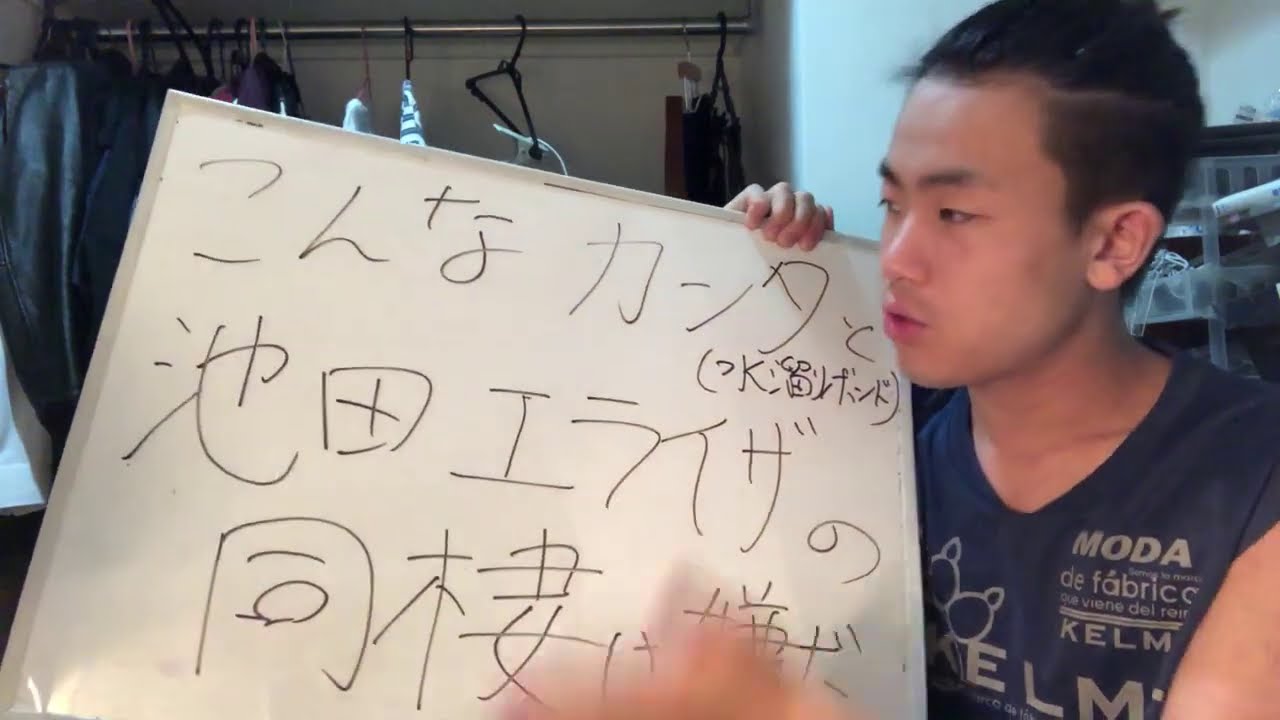 こんなカンタと
(水溜りボンド)
池田エライザの
同棲は嫌だ
MODA
de fábrica
que viene del rein
KELM
KELMT